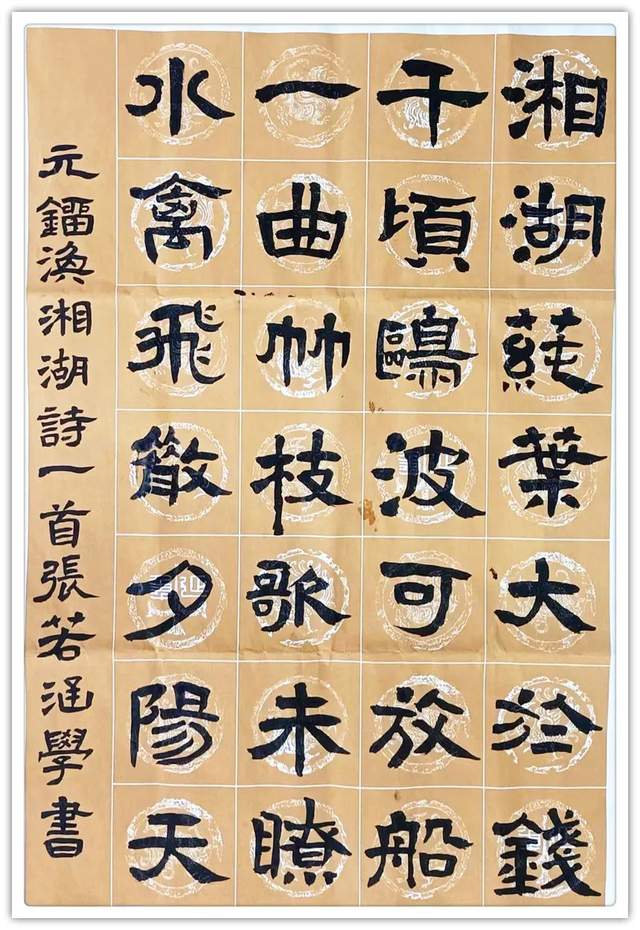 湘湖蒓葉大於錢
千頃鷗波可放船
一曲竹枝歌未瞭
水禽飛散夕陽天
元鎦渙湘湖詩一首張若涵學書